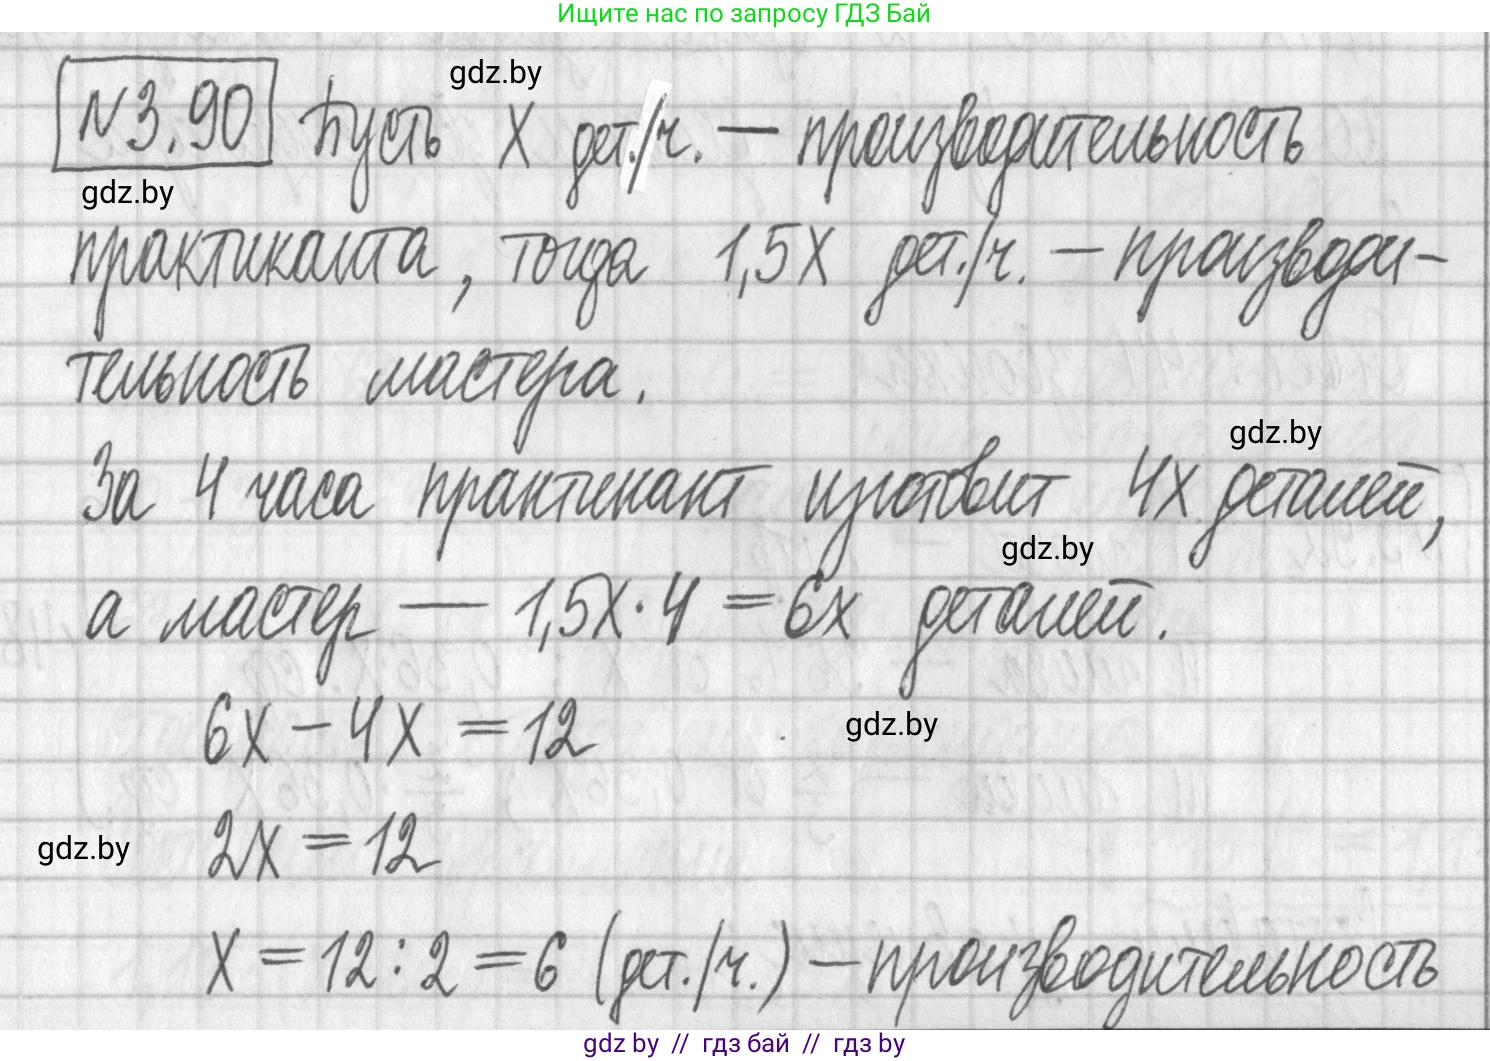 Ищите нас по запросу ГДЗ Бай
gdz.by
№3.90 Пусть x дет./ч. — производительность
gdz.by
практиканта, тогда 1,5x дет./ч. — производи-
тельность мастера.
gdz.by
За 4 часа практикант изготовит 4x деталей,
gdz.by
а мастер — 1,5x·4 = 6x деталей.
6x − 4x = 12
gdz.by
2x = 12
gdz.by
x = 12:2 = 6 (дет./ч.) — производительность
gdz.by // гдз бай // гдз by